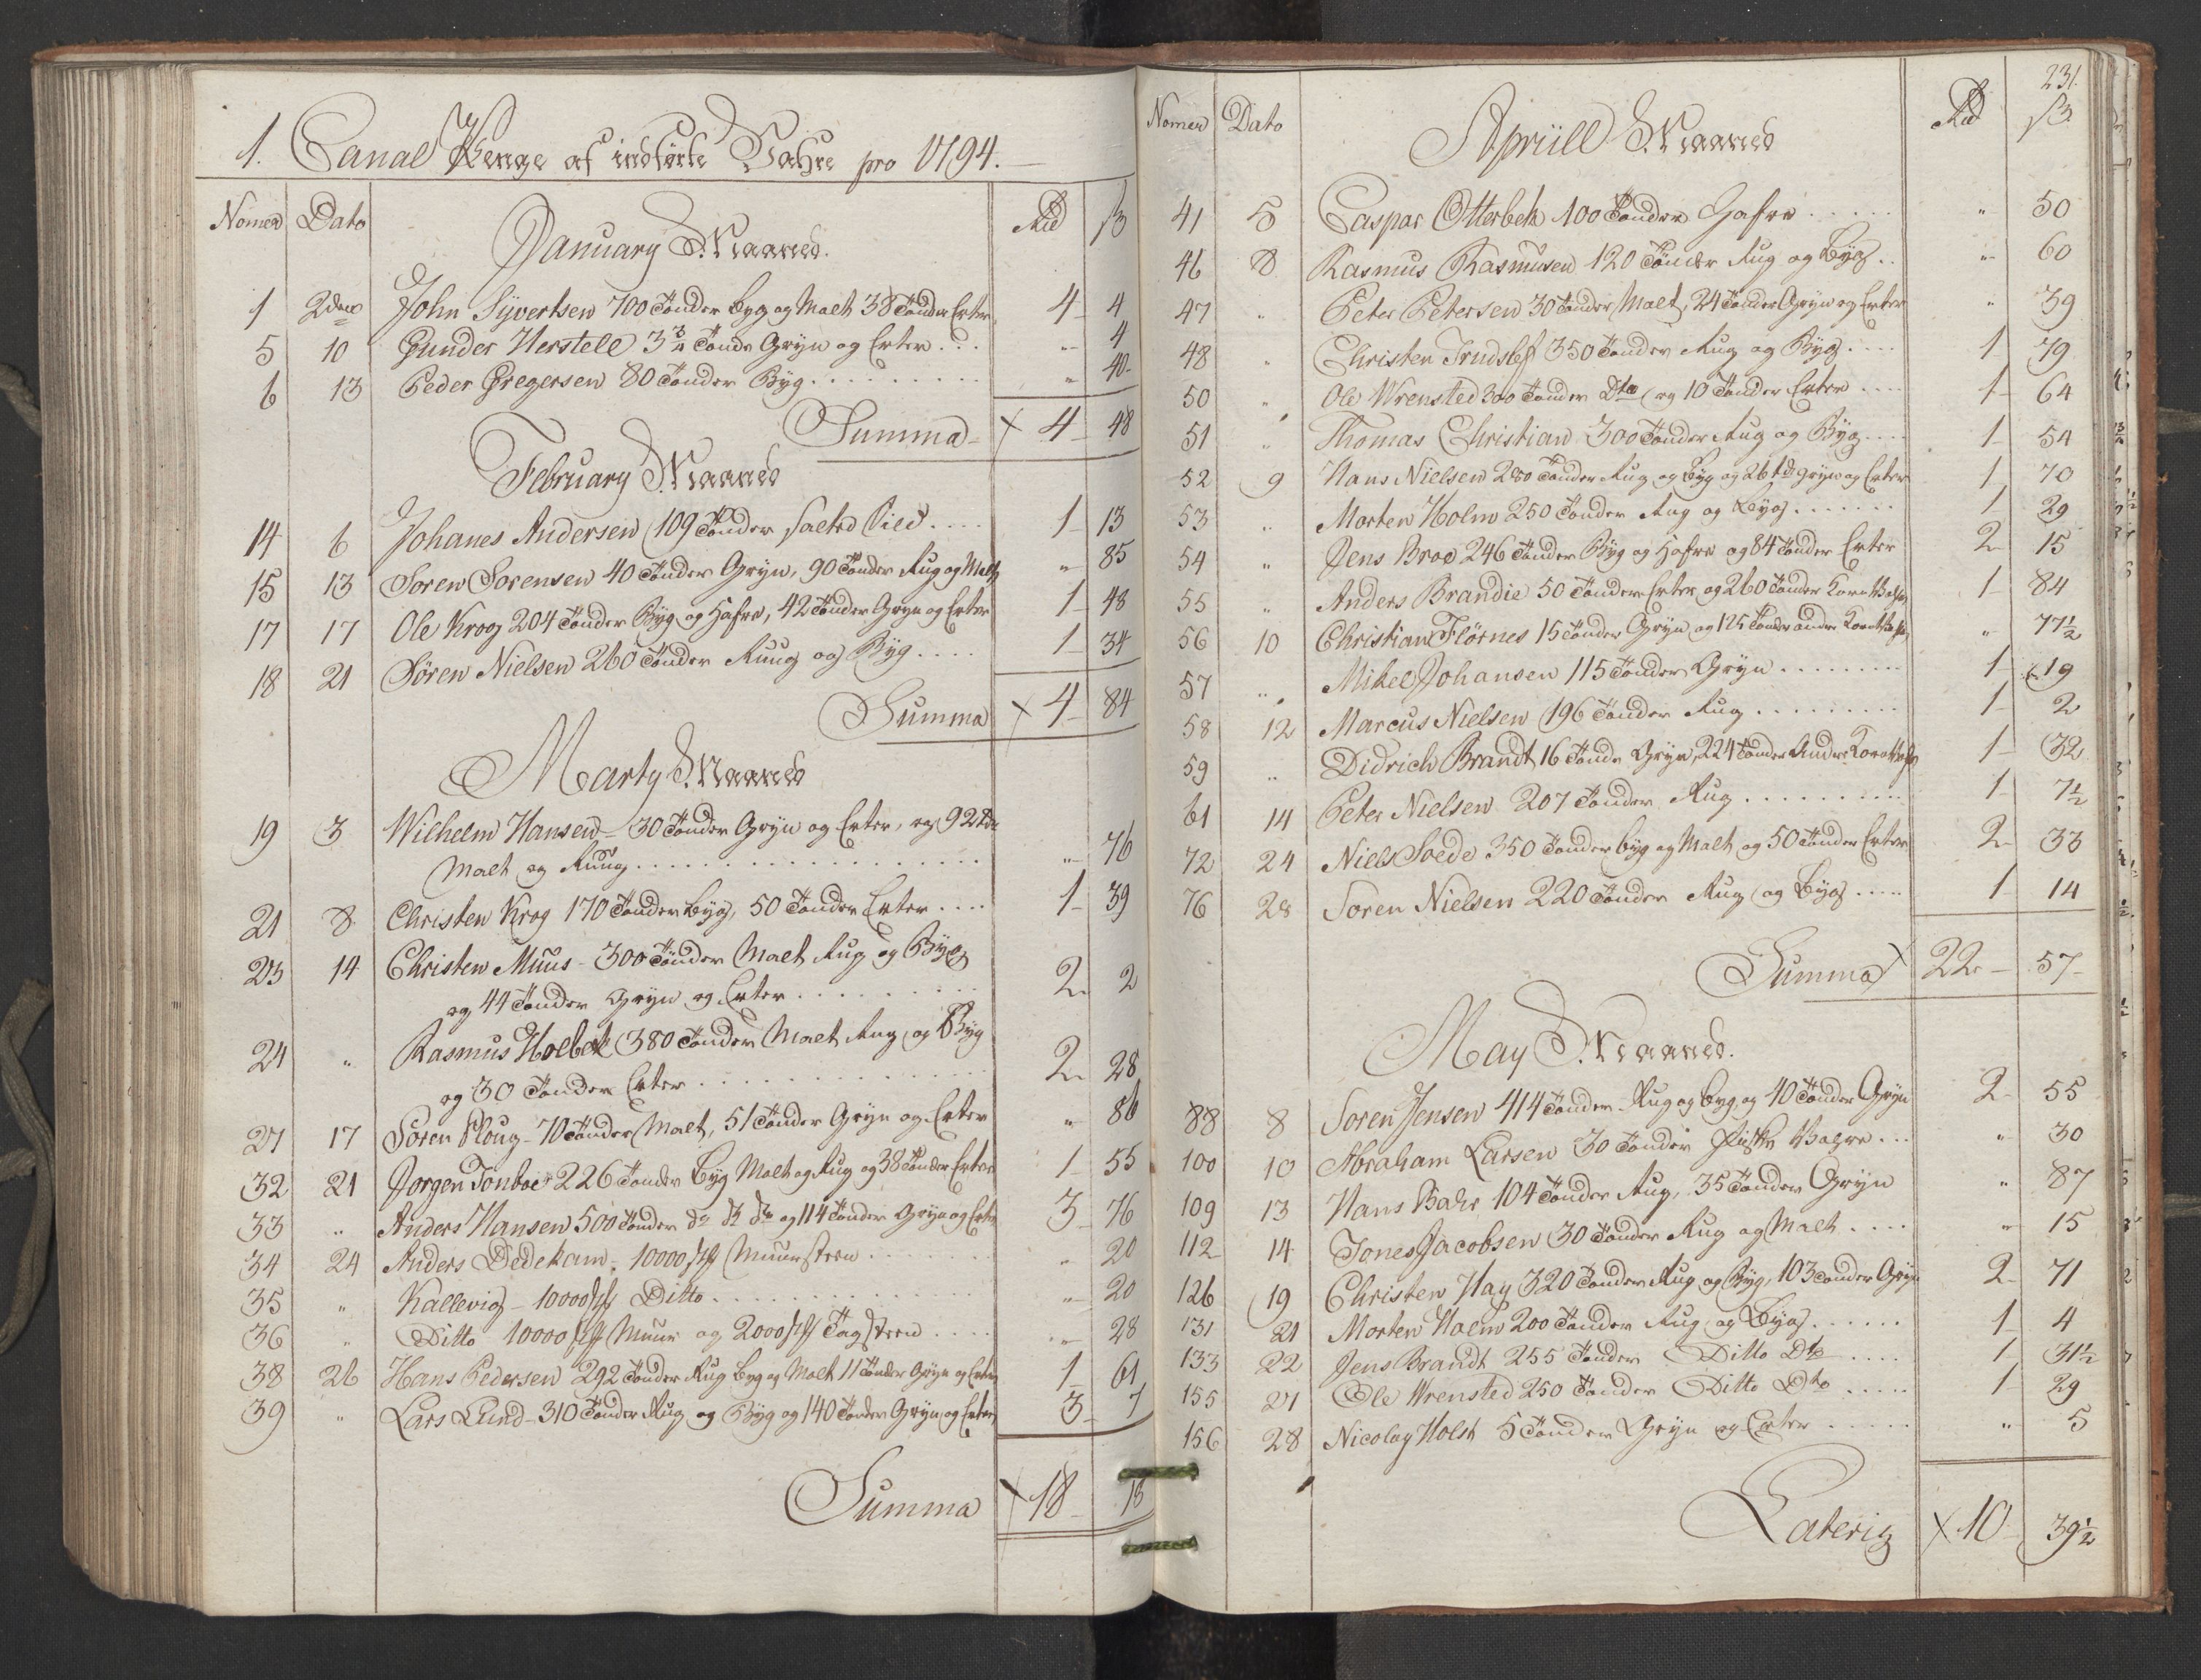 1. Canal Penge af indførte Vahre pro 1794.
Nomer Dato January Maaned. Rd ß
1 2den John Syvertsen 700 Tønder byg og Malt 38 Tønder Erter 4 4
5 10 Gunder Herstell 3 3/4 Tønde Gryn og Erter ... " 4
6 13 Peder Gregersen 80 Tønder Byg " 40
Summa 4 48
February Maaned
14 6 Johanes Andersen 109 Tønder salted Sild 1 13
15 13 Soren Sorensen 40 Tønder Gryn, 90 Tønder Rug og Malt " 85
17 17 Ole Krog 204 Tønder Byg og Hafre, 42 Tønder Gryn og Erter 1 48
18 21 Søren Nielsen 260 Tønder Ruug og Byg 1 34
Summa 4 84
Marty Maaned
19 3 Wilhelm Hansen 30 Tønder Gryn og Erter, og 92 Tdr
Malt og Ruug " 76
21 8 Christen Krog 170 Tønder byg, 50 Tønder Erter 1 39
23 14 Christen Muus 300 Tønder Malt Rug og Byg
og 44 Tønder Gryn og Erter 2 2
24 " Rasmus Holbek 380 Tønder Malt Rug og Byg
og 30 Tønder Erter 2 28
27 17 Soren Ploug 70 Tønder Malt, 51 Tønder Gryn og Erter " 86
32 21 Jorgen Tonboe 226 Tønder Byg Malt og Rug og 38 Tønder Erter 1 55
33 " Anders Hansen 500 Tønder do do do og 114 Tønder Gryn og Erter 3 76
34 24 Anders Dedekam 10000 st Muursteen " 20
35 " Kallevig 10000 st Ditto " 20
36 " Ditto 10000 st Muur og 2000 st Tagsteen " 28
38 26 Hans Pedersen 292 Tønder Rug byg og Malt 11 Tønder Gryn og Erter 1 61
39 " Lars Lund 310 Tønder Rug og Byg og 140 Tønder Gryn og Erter 3 7
Summa 18 16
231.
Nomer Dato Apriill Maaned Rd ß
41 5 Caspar Otterbek 100 Tønder Hafre " 50
46 8 Rasmus Rasmusen 120 Tønder Rug og Byg " 60
47 " Peter Petersen 30 Tønder Malt, 24 Tønder Gryn og Erter " 39
48 " Christen Trudslef 350 Tønder Rug og Byg 1 79
50 " Ole Wrensted 300 Tønder Dto og 10 Tønder Erter 1 64
51 " Thomas Christian 300 Tønder Rug og Byg 1 54
52 9 Hans Nielsen 280 Tønder Rug og Byg og 26 td Gryn og Erter 1 70
53 " Morten Holm 250 Tønder Rug og Byg 1 29
54 " Jens Broe 246 Tønder Byg og Hafre og 84 Tønder Erter 2 15
55 " Anders Brandie 50 Tønder Erter og 260 Tønder Korn Vahre 1 84
56 10 Christian Flörnes 15 Tønder Gryn og 125 Tønder andre Korn Vahre " 77 1/2
57 " Mikel Johansen 115 Tønder Gryn 1 19
58 12 Marcus Nielsen 196 Tønder Rug 1 2
59 " Didrich Brandt 16 Tønde Gryn, 224 Tønder Andre Korn Vahre 1 32
61 14 Peter Nielsen 207 Tønder Rug 1 7 1/2
72 24 Niels Soede 350 Tønder byg og Malt og 50 Tønder Erter 2 33
76 28 Soren Nielsen 220 Tønder Rug og Byg 1 14
Summa 22 57
May Maaned.
88 8 Soren Jensen 414 Tønder Rug og byg og 40 Tønder Gryn 2 55
100 10 Abraham Larsen 30 Tønder Fiske Vahre " 30
109 13 Hans Bahr 104 Tønder Rug, 35 Tønder Gryn " 87
112 14 Jones Jacobsen 30 Tønder Rug og Malt " 15
126 19 Christen Hay 320 Tønder Rug og Byg, 103 Tønder Gryn 2 71
131 21 Morten Holm 200 Tønder Rug og Byg 1 4
133 22 Jens Brandt 255 Tønder Ditto Dto 1 31 1/2
155 27 Ole Wrensted 250 Tønder Ditto Dto 1 29
156 28 Nicolay Holst 5 Tønder Gryn og Erter " 5
Laterig 10 39 1/2